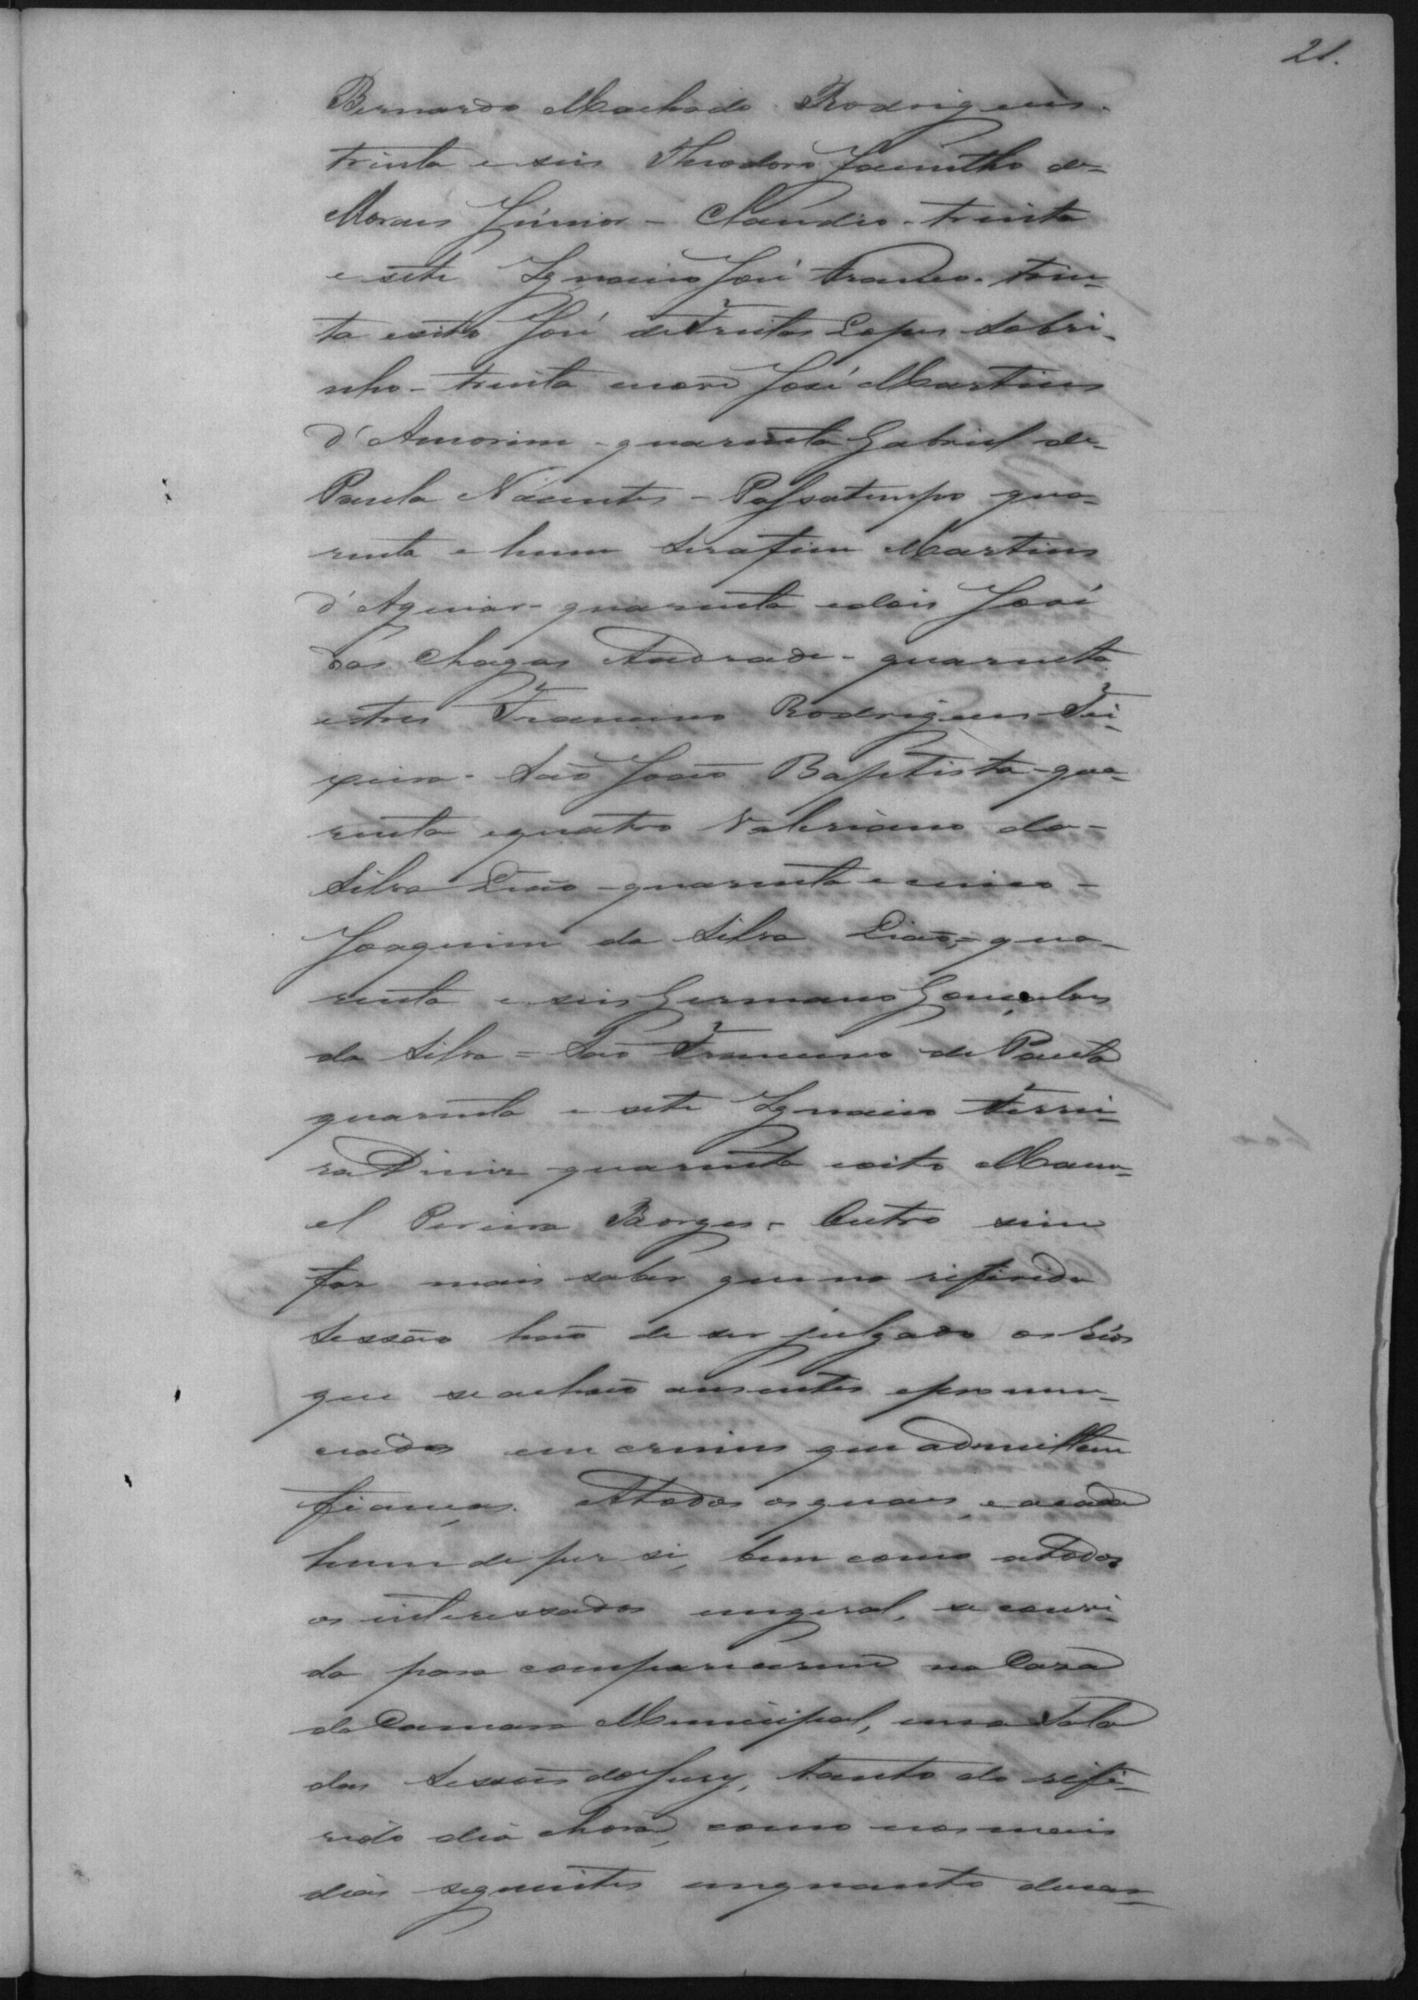 21.
Bernardo Machado Rodrigues.
trinta e seis Theodoro Jacintho de
Moraes Júnior - Claudio - trinta
e sete Ignacio José Franco. trin-
ta e oito José de Freitas Lopes Sobri-
nho - trinta e nove José Martins
d'Amorim - quarenta Gabriel de
Paula Nacentes - Passatempo qua-
renta e hum Serafim Martins
d'Aguiar - quarenta e dois José
das Chagas Andrade - quarenta
e tres Francisco Rodrigues Tei-
xeira - São João Baptista - qua-
renta e quatro Valeriano da -
Silva Leão - quarenta e cinco -
Joaquim da Silva Leão, - qua-
renta e seis Germano Gonçalves
da Silva = São Francisco de Paula
quarenta e sete Ignacio Ferrei-
ra Diniz quarenta e oito Mano-
el Pereira Borges - Outro sim
faz mais saber que na referida
Sessão hão de ser julgado os Réos
que se achão ausentes e pronun-
ciados em crimes que admittem
fianças. A todos os quaes, e a cada
hum de per si, bem como a todos
os interessados em geral, se convi-
da para comparecerem na Caza
da Camara Municipal, em a Sala
das Sessões do Jury, tanto do refe-
rido dia e hora, como nos mais
dias seguintes emquanto durar